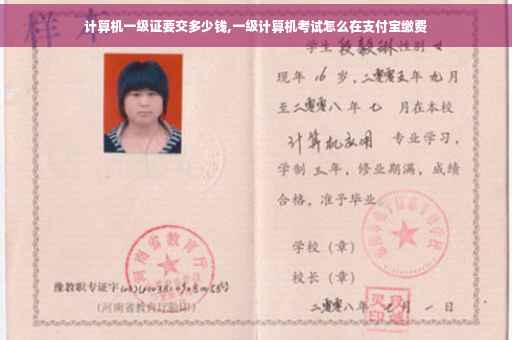 计算机一级证要交多少钱,一级计算机考试怎么在支付宝缴费
样本
学生 段毅琳 性别 女
现年 16 岁,二零零五年 九月
至二零零八年 七 月在本校
计算机应用 专业学习,
学制 三年,修业期满,成绩
合格,准予毕业
学校(章)
校长(章)
二零零八年 月 一日
河南省教育厅
豫教职专证字
(河南省教育厅验印)